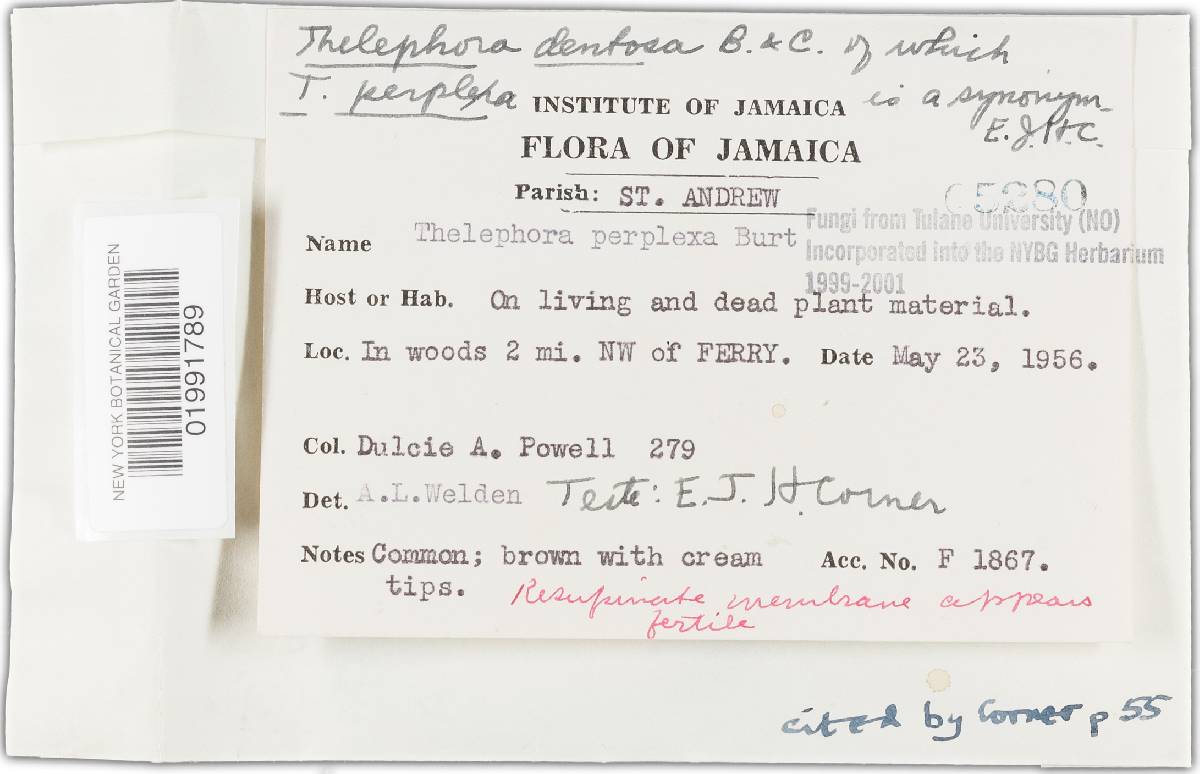 Thelephora dentosa B. & C. of which
T. perplexa is a synonym
E.J.H.C.
INSTITUTE OF JAMAICA
FLORA OF JAMAICA
Parish: ST. ANDREW
65280
Fungi from Tulane University (NO)
Incorporated into the NYBG Herbarium
1999-2001
Name Thelephora perplexa Burt
Host or Hab. On living and dead plant material.
Loc. In woods 2 mi. NW of FERRY. Date May 23, 1956.
Col. Dulcie A. Powell 279
Det. A.L.Welden Teste: E.J.H. Corner
Notes Common; brown with cream tips. Acc. No. F 1867.
Resupinate membrane appears
fertile
cited by Corner p 55
NEW YORK BOTANICAL GARDEN
01991789